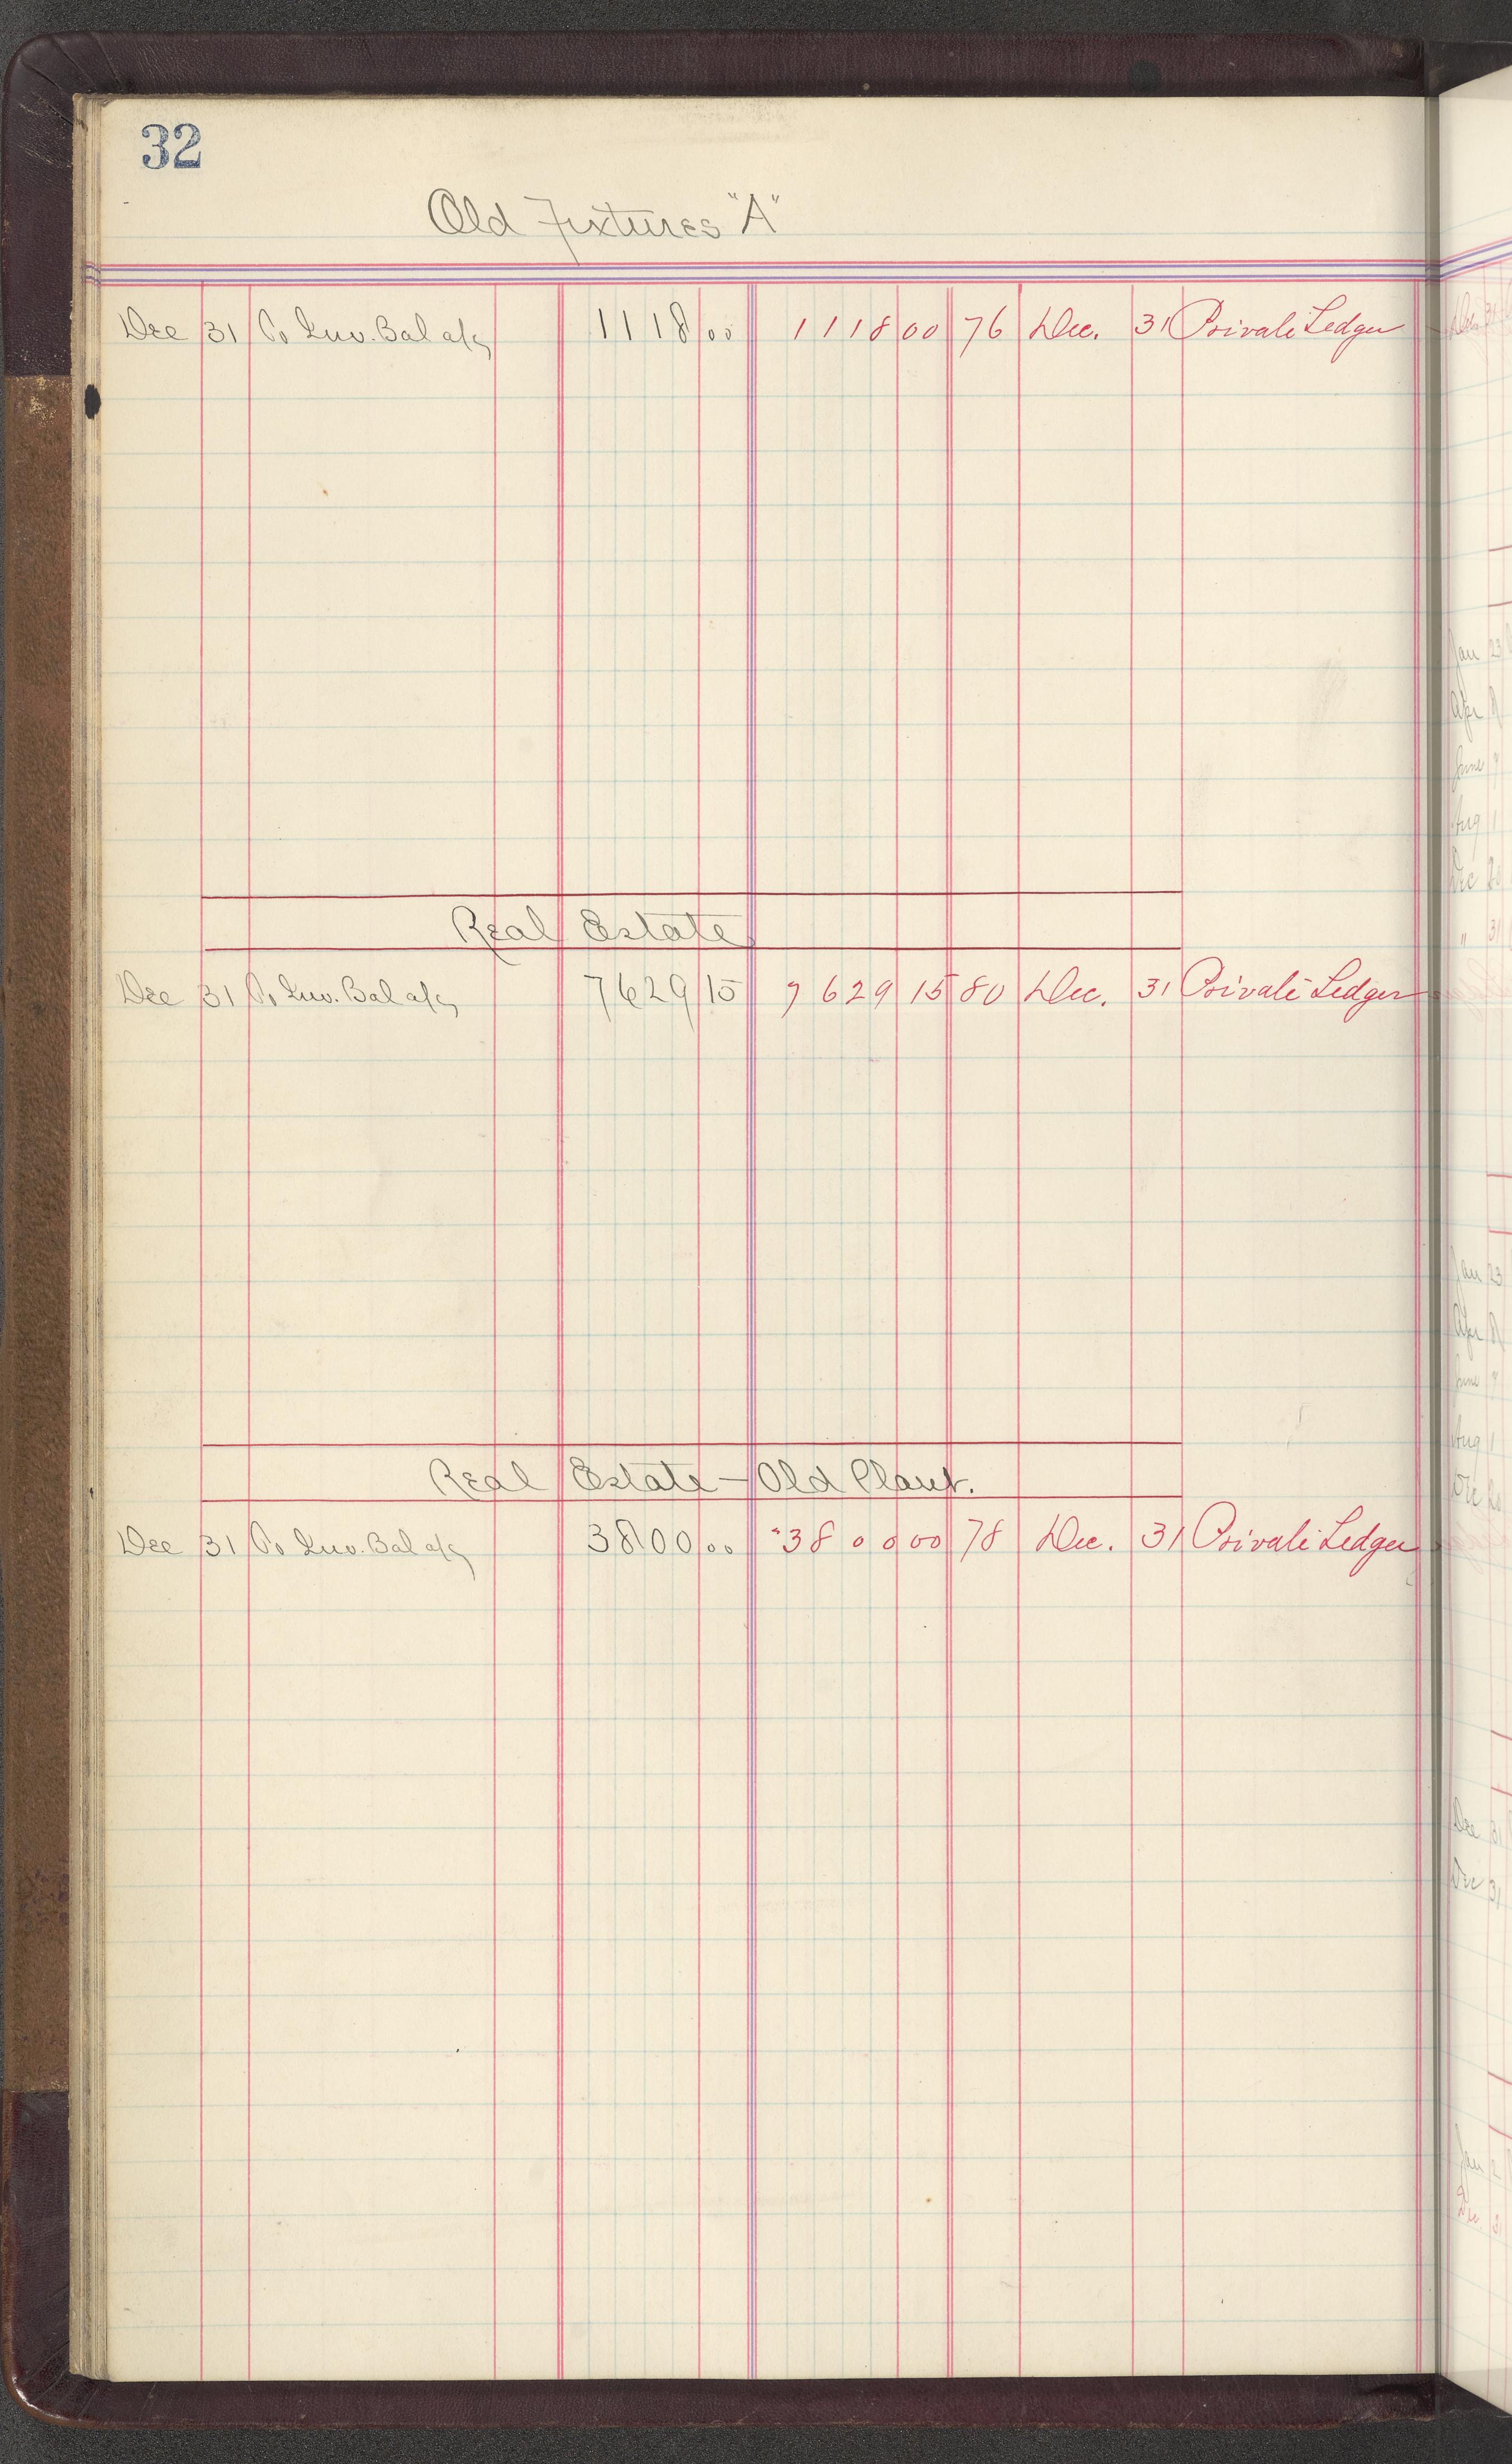 32
Old Fixtures "A"
Dec 31 Inv. Bal a/c 1118 00 1118 00 76 Dec. 31 Private Ledger
Real Estate
Dec 31 Inv. Bal a/c 7629 15 7629 15 80 Dec. 31 Private Ledger
Real Estate — Old Plant.
Dec 31 Inv. Bal a/c 3800 00 3800 00 78 Dec. 31 Private Ledger
Jan 23
Apr 8
June 7
Aug 1
Dec 20
" 31
Jan 23
Apr 8
June 7
Aug 1
Dec 20
Dec 31
Dec 31
Jan 2
Dec. 31